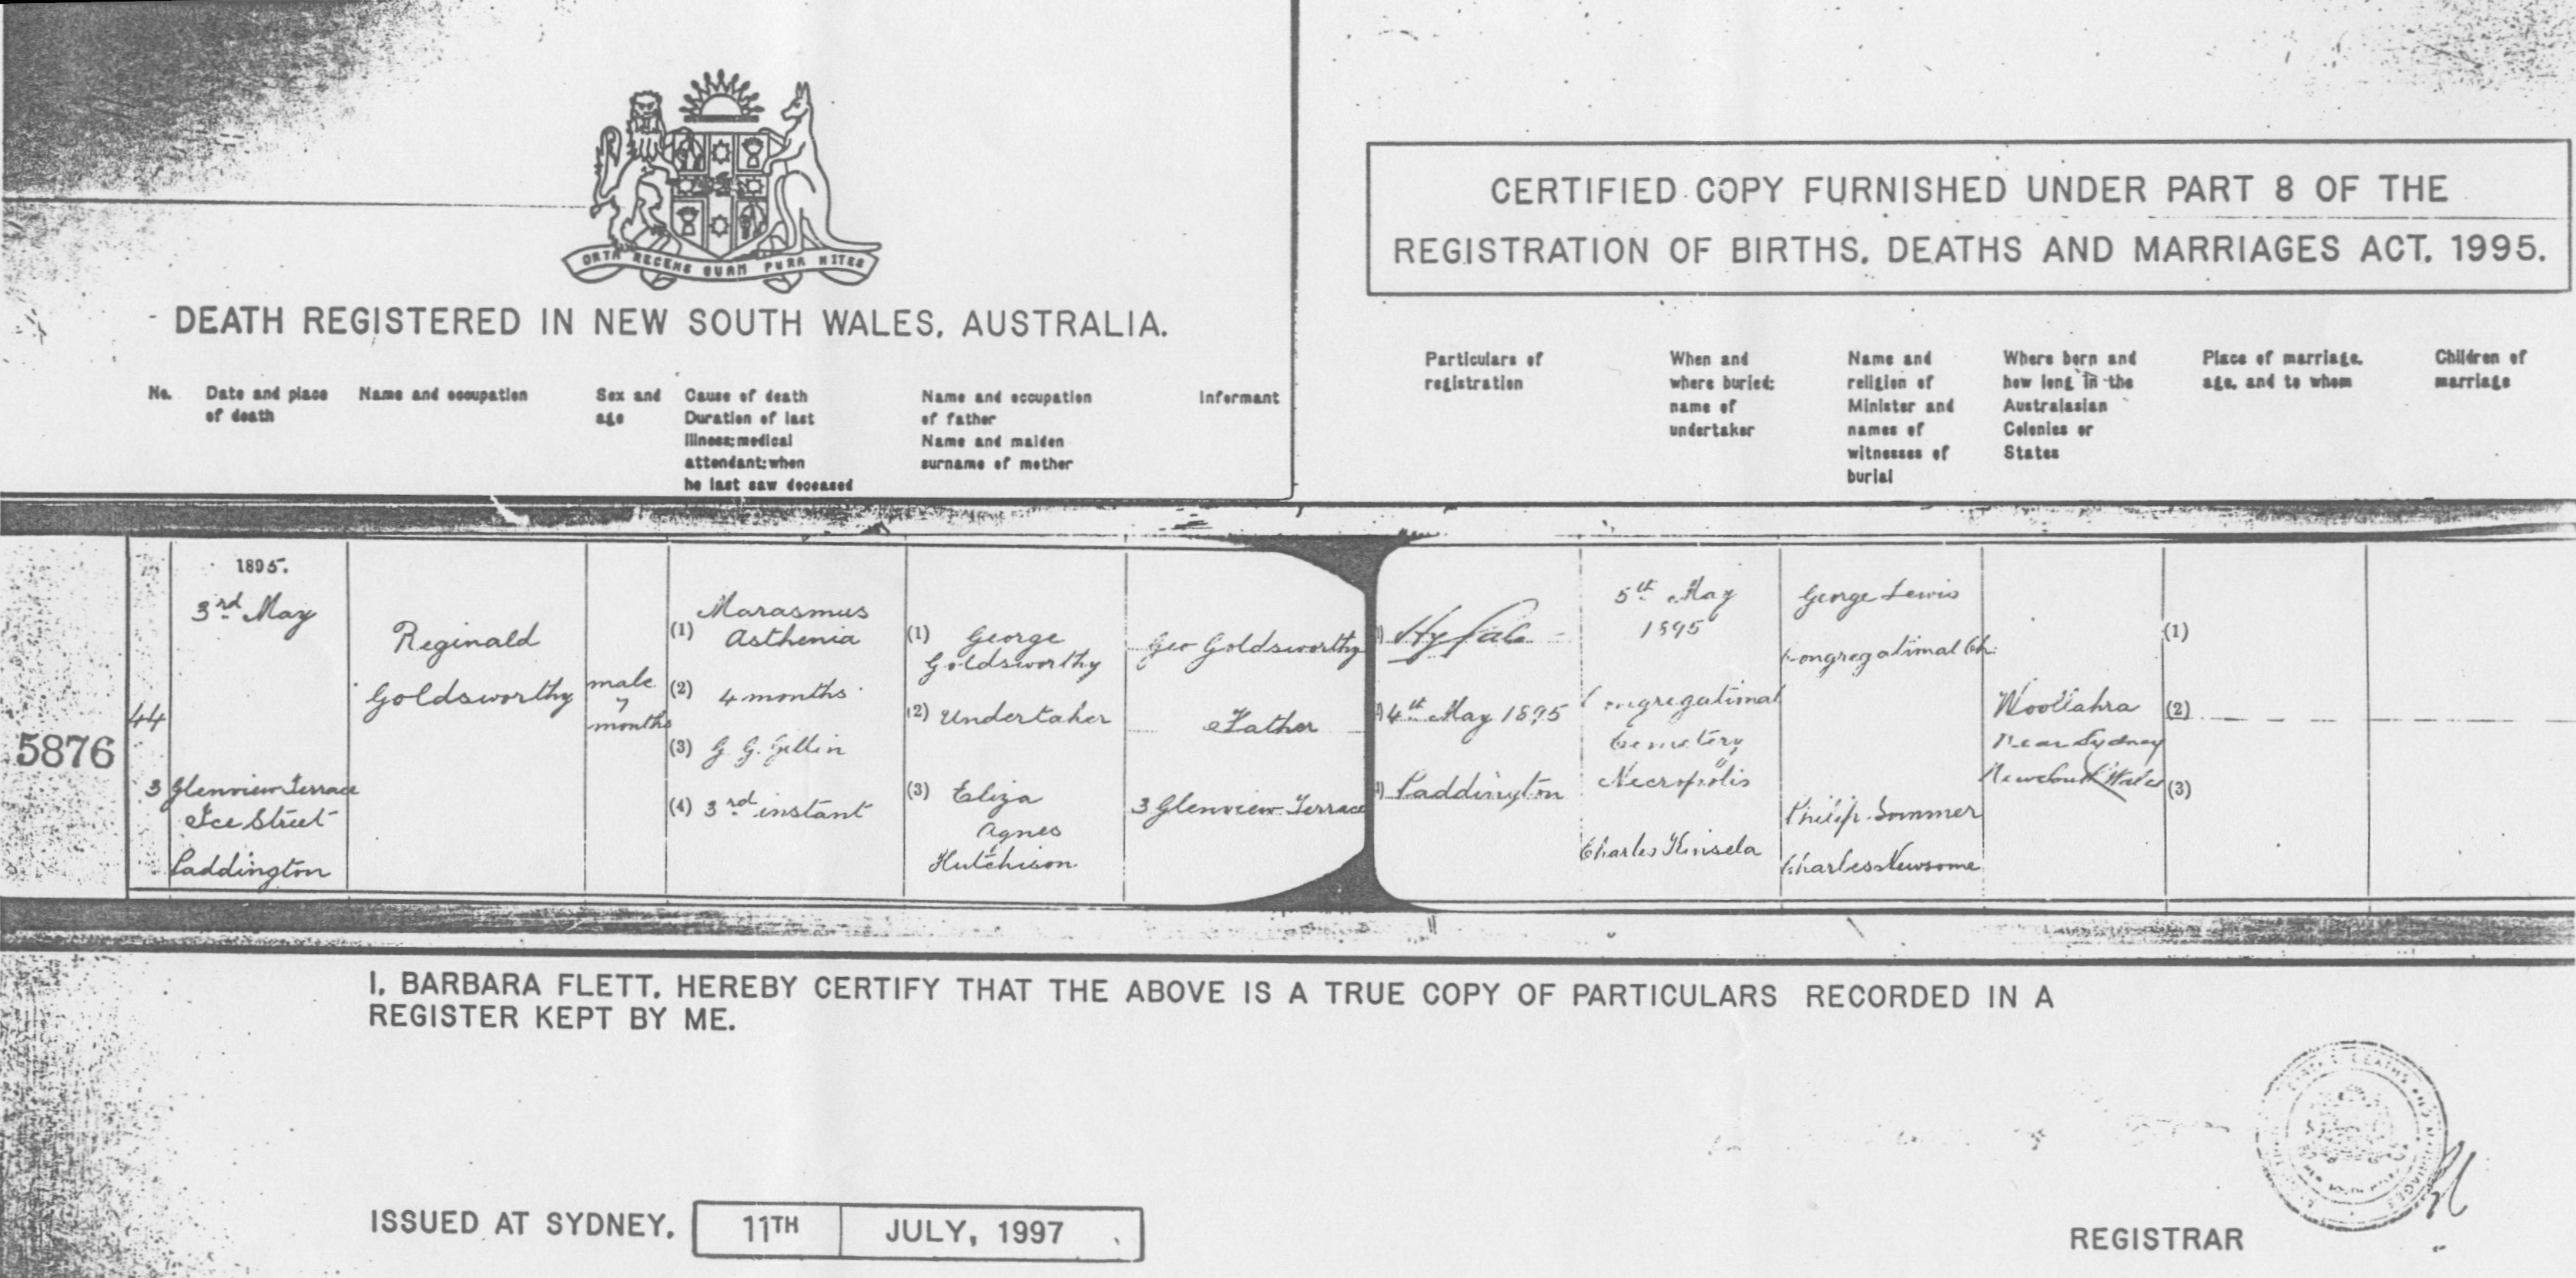 ORTA RECENS QUAM PURA NITES
DEATH REGISTERED IN NEW SOUTH WALES, AUSTRALIA.
CERTIFIED COPY FURNISHED UNDER PART 8 OF THE
REGISTRATION OF BIRTHS, DEATHS AND MARRIAGES ACT, 1995.
No.
Date and place
of death
Name and occupation
Sex and
age
Cause of death
Duration of last
illness; medical
attendant; when
he last saw deceased
Name and occupation
of father
Name and maiden
surname of mother
Informant
Particulars of
registration
When and
where buried;
name of
undertaker
Name and
religion of
Minister and
names of
witnesses of
burial
Where born and
how long in the
Australasian
Colonies or
States
Place of marriage,
age, and to whom
Children of
marriage
5876
44
1895.
3rd May
3 Glenview Terrace
Ice Street
Paddington
Reginald
Goldsworthy
male
7
months
(1) Marasmus
Asthenia
(2) 4 months
(3) G. G.
(4) 3rd instant
(1) George
Goldsworthy
(2) Undertaker
(3) Eliza
Agnes
Hutchison
Geo Goldsworthy
Father
3 Glenview Terrace
4th May 1895
Paddington
5th May
1895
Congregational
Cemetery
Necropolis
Charles Kinsela
George Lewis
Congregational Ch.
Philip Sommer
Charles Newsome
Woollahra
Near Sydney
New South Wales
(1)
(2)
(3)
I, BARBARA FLETT, HEREBY CERTIFY THAT THE ABOVE IS A TRUE COPY OF PARTICULARS RECORDED IN A
REGISTER KEPT BY ME.
ISSUED AT SYDNEY, 11TH JULY, 1997
REGISTRAR